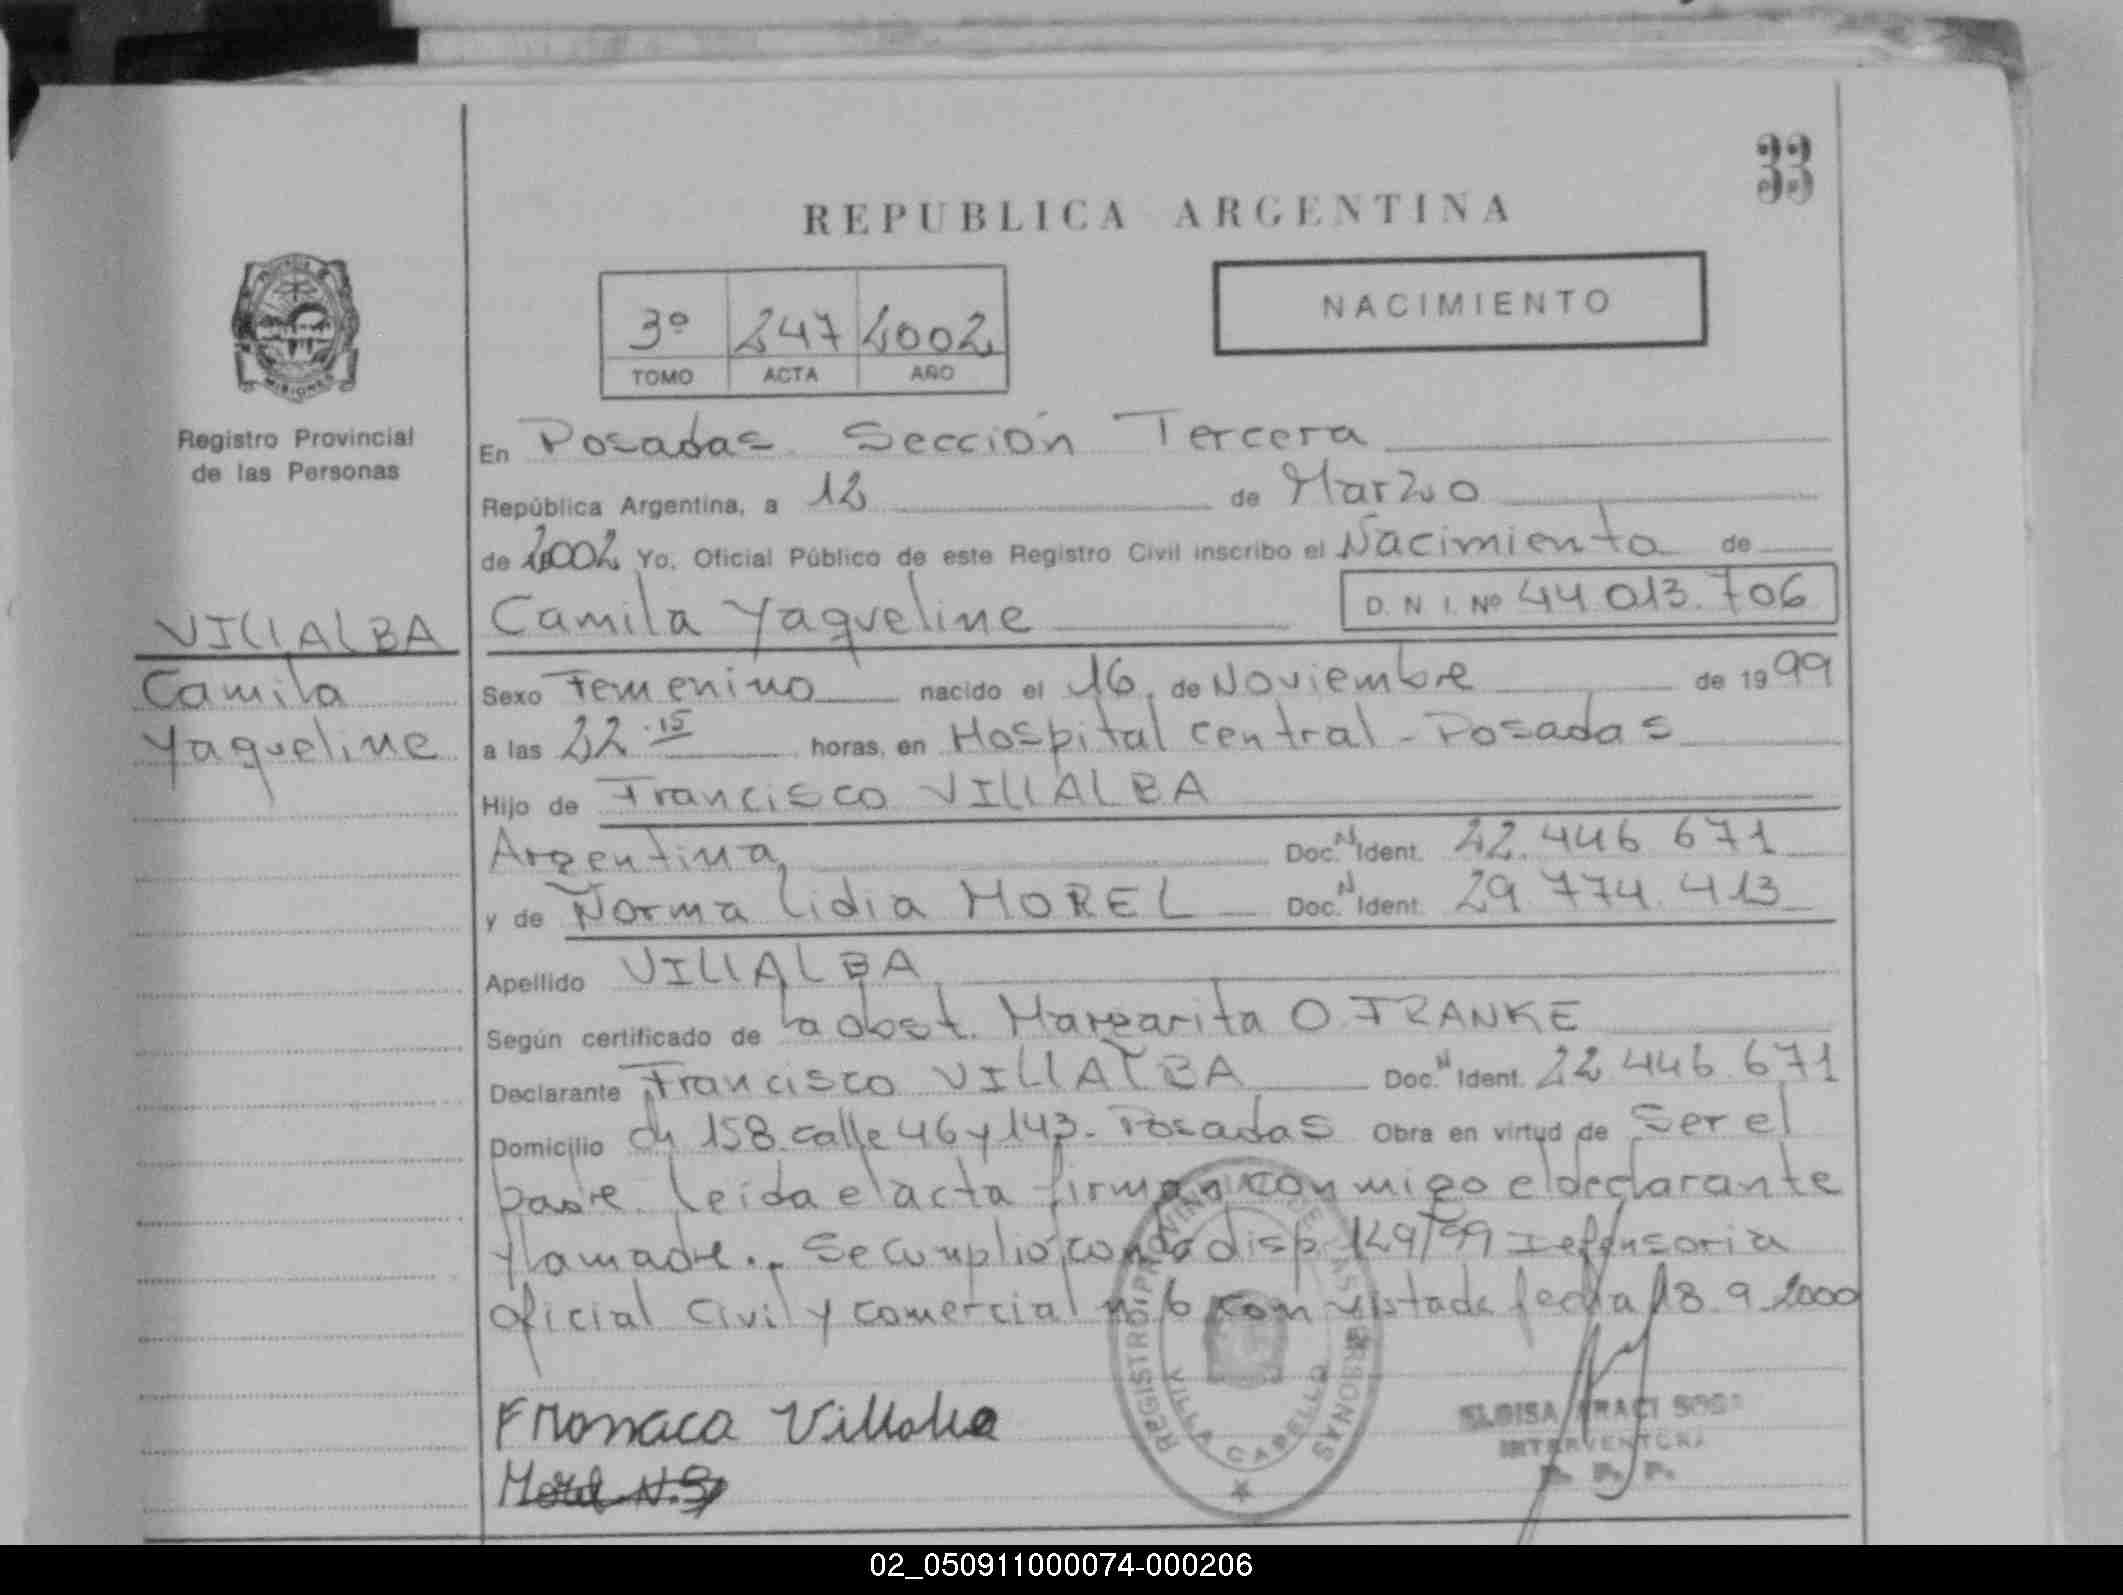 33
REPUBLICA ARGENTINA
3º 247 2002
TOMO ACTA AÑO
NACIMIENTO
MISIONES
Registro Provincial
de las Personas
En Posadas Sección Tercera
República Argentina, a 12 de Marzo
de 2002 Yo, Oficial Público de este Registro Civil inscribo el Nacimiento de
VILLALBA
Camila Yaqueline
D. N. I. Nº 44.013.706
Camila
Yaqueline
Sexo Femenino nacido el 16 de Noviembre de 1999
a las 22.15 horas, en Hospital Central - Posadas
Hijo de Francisco VILLALBA
Argentina Doc. N Ident. 22.446 671
y de Norma Lidia MOREL Doc. N Ident. 29.774.413
Apellido VILLALBA
Según certificado de la obst. Margarita O. FRANKE
Declarante Francisco VILLALBA Doc. N Ident. 22 446.671
Domicilio ch 158 calle 46 y 143 - Posadas Obra en virtud de ser el
padre. Leida el acta firman conmigo el declarante
y la madre.- Se cumplió con la disp. 129/99 Defensoria
oficial Civil y comercial nº 6 con fecha 18.9.2000
Villalba
Morel N.
REGISTRO PROVINCIAL DE LAS PERSONAS
VILLA CABELLO
ELOISA ARACI SOSA
INTERVENTORA
R. P. P.
02_050911000074-000206